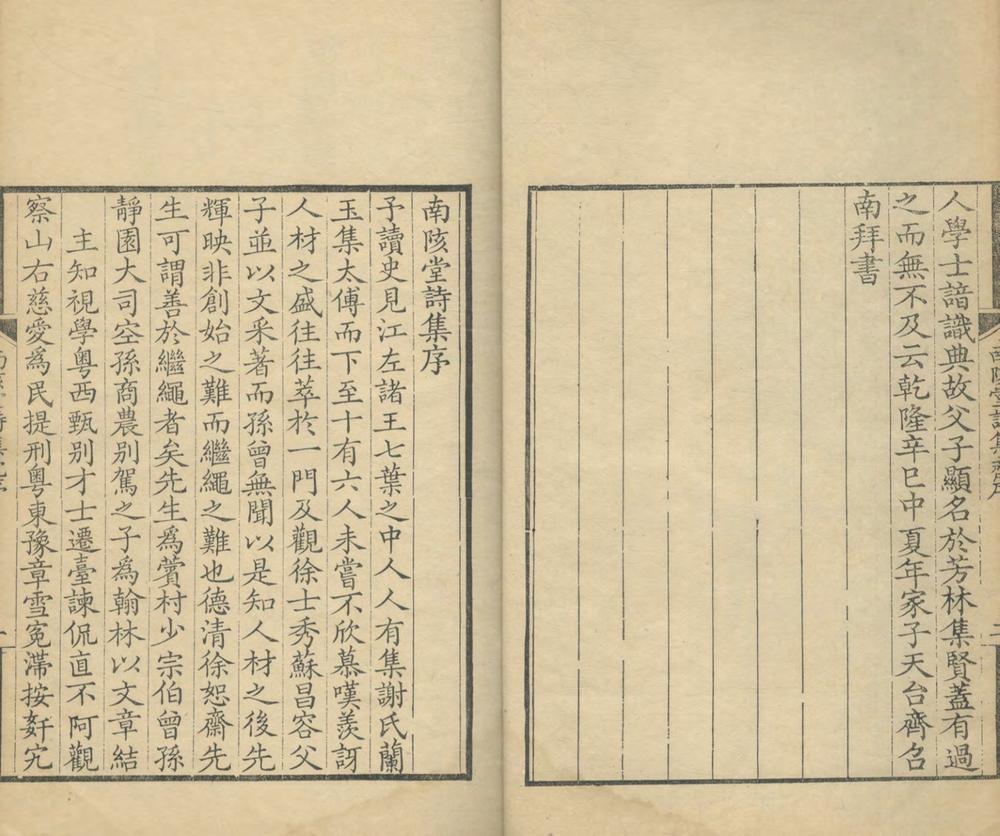 人學士諳識典故父子顯名於芳林集賢蓋有過
之而無不及云乾隆辛巳中夏年家子天台齊召
南拜書
南陔堂詩集序
予讀史見江左諸王七葉之中人人有集謝氏蘭
玉集太傅而下至十有六人未嘗不欣慕嘆羨訝
人材之盛往往萃於一門及觀徐士秀蘇昌容父
子並以文采著而孫曾無聞以是知人材之後先
輝映非創始之難而繼繩之難也德清徐恕齋先
生可謂善於繼繩者矣先生爲蘋村少宗伯曾孫
靜園大司空孫商農別駕之子爲翰林以文章結
主知視學粵西甄別才士遷臺諫侃直不阿觀
察山右慈愛爲民提刑粵東豫章雪冤滯按奸宄